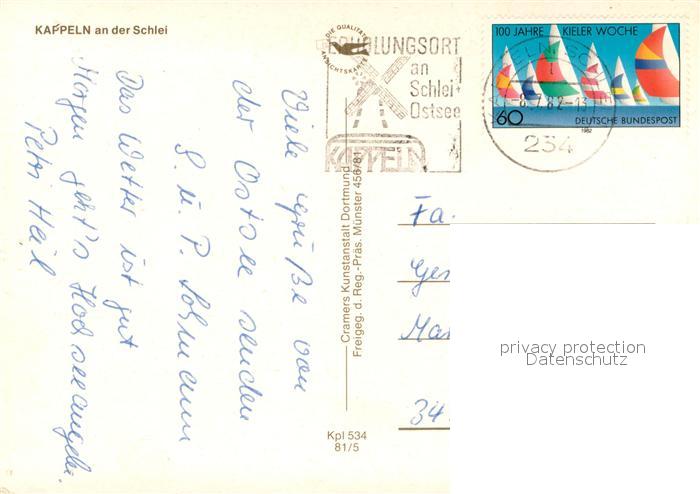 KAPPELN an der Schlei
DIE QUALITÄTS
ANSICHTSKARTE
ERHOLUNGSORT
an
Schlei+
Ostsee
KAPPELN
100 JAHRE KIELER WOCHE
-8.7.82-13
60 DEUTSCHE BUNDESPOST
1982
234
Viele Grüße von
der Ostsee senden
S. u. P.
Das Wetter ist gut
Morgen geht's Hochseeangeln.
Petri Heil
Cramers Kunstanstalt Dortmund
Freigeg. d. Reg.-Präs. Münster 456/81
Kpl 534
81/5
Fa.
Ges
Mar
34
privacy protection
Datenschutz